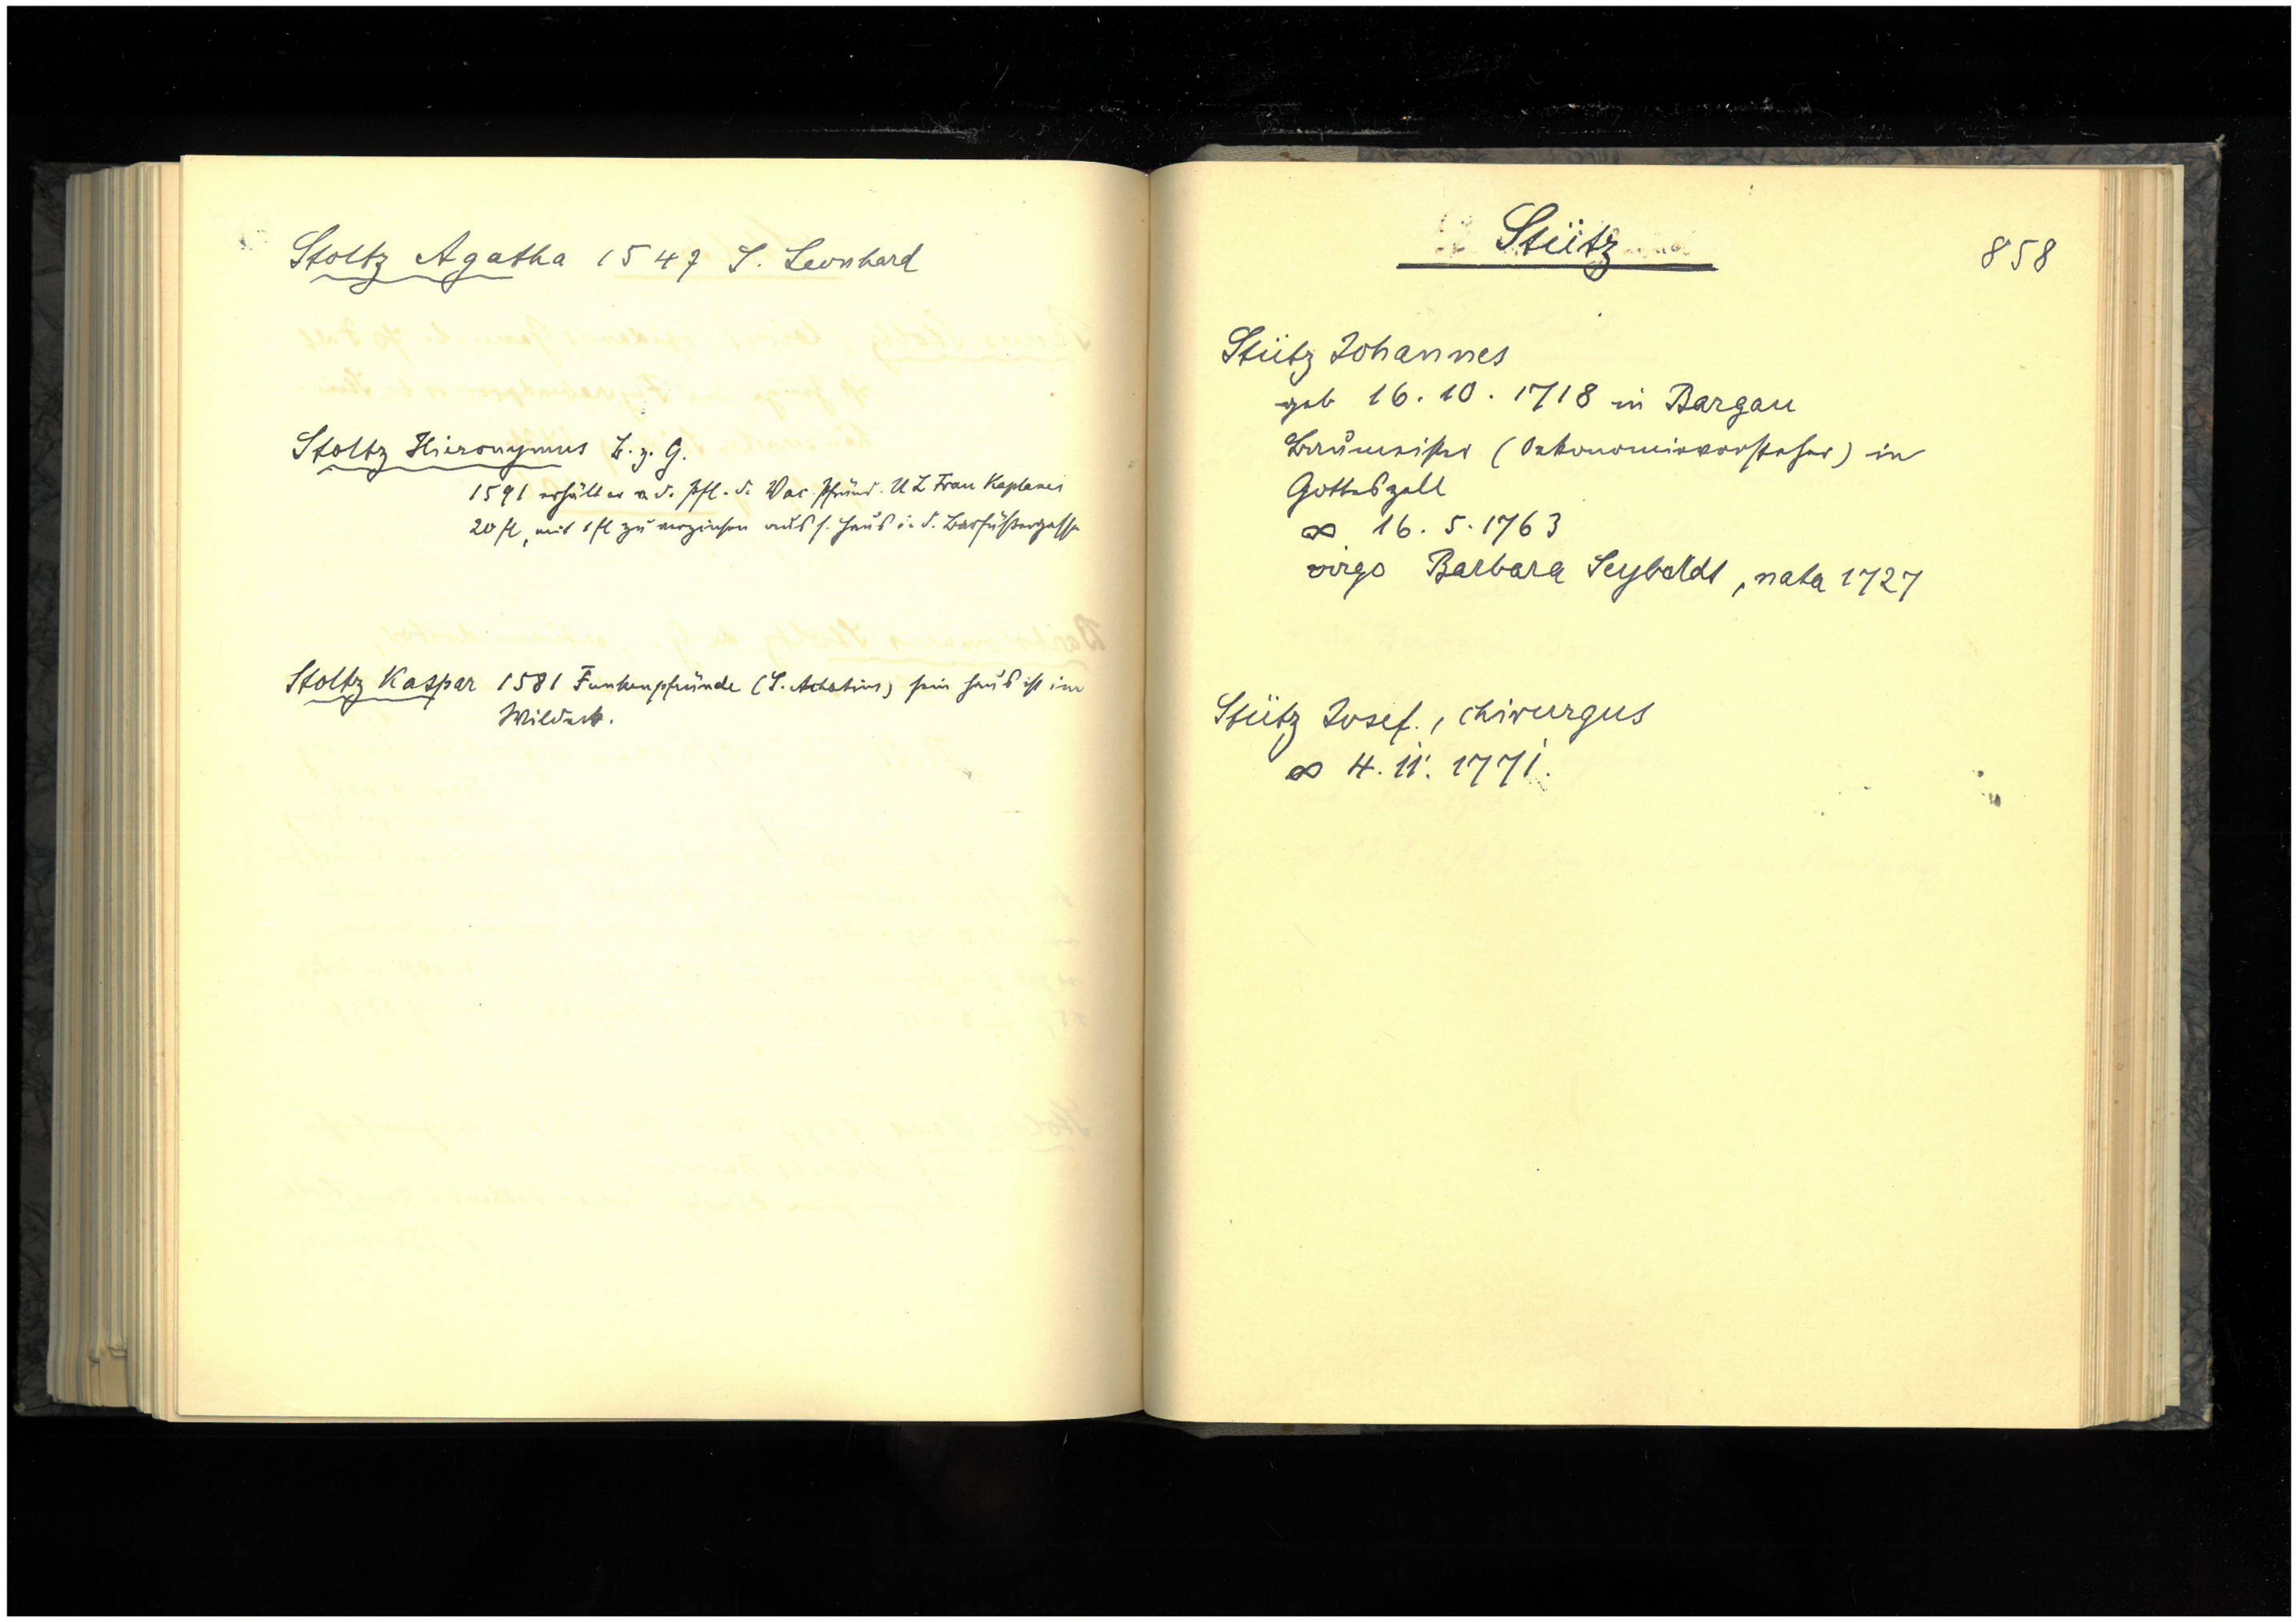 Stoltz Agatha 1547 S. Leonhard
Stoltz Hieronymus B. z. G.
1591 erhält er v. d. Pfl. d. Vac. Pfründ. U L Frau Kaplanei
20 fl, mit 1 fl zu verzinsen aus s. Haus i. d. Barfüßergasse
Stoltz Kaspar 1581 Funkenpfründe (S. Achatius) sein Haus ist im
Wildeck.
Stütz
858
Stütz Johannes
geb 16. 10. 1718 in Bargau
Baumeister (Oekonomievorsteher) in
Gotteszell
∞ 16. 5. 1763
virgo Barbara Seyboldt, nata 1727
Stütz Josef., chirurgus
∞ 4. 11. 1771.